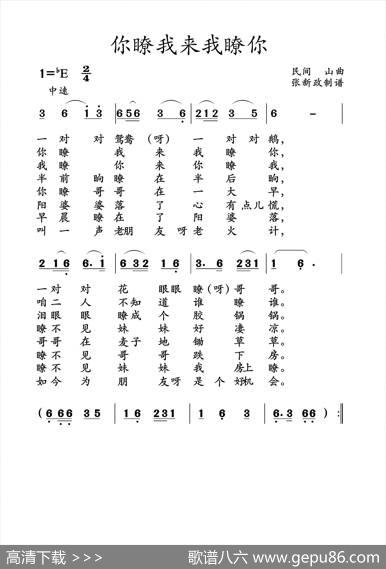 你瞭我来我瞭你
1=♭E 2/4
民间 山曲
中速
张新政制谱
3 6 1 3 | 6 5 6 3 6 | 2 1 2 3 5 | 6 - |
一对对鸳鸯(呀)一对对鹅,
你瞭我来我瞭你,
我瞭你来你瞭我,
半前晌瞭在半后晌,
你瞭哥哥在一大早,
阳婆婆落了心有点儿慌,
早晨瞭在了阳婆落,
叫一声老朋友呀老火计,
2 1 6 6· 1 | 6· 1 2 1 6 | 3· 6 2 3 1 | 1 6· |
一对对花眼眼瞭(呀)哥哥。
咱二人不知道谁瞭谁。
泪眼眼瞭成个胶锅锅。
瞭不见妹妹好凄凉。
哥哥在麦子地锄草草。
瞭不见哥哥跌下房。
瞭不见妹妹我房上瞭。
如今为朋友呀是个好机会。
(6 6 6 3 5 | 1 2 1 6 | 1 6 2 3 1 | 1 6 3 | 6· 3 6 6) :||
高清下载 >>>
歌谱八六 www.gepu86.com